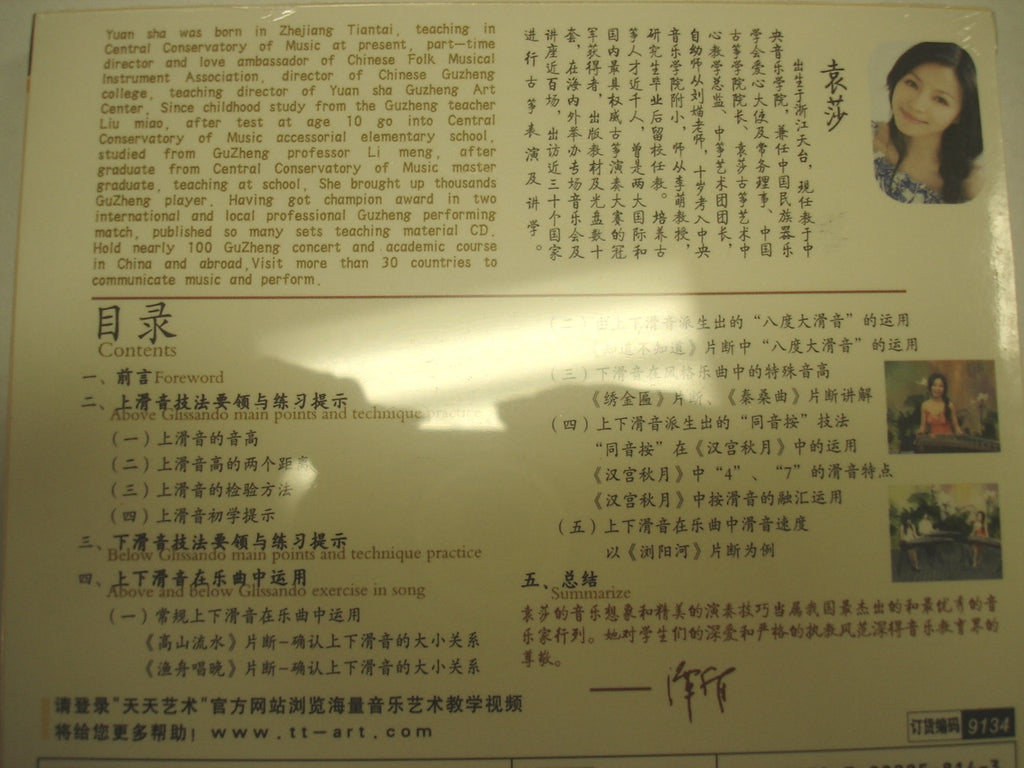 Yuan sha was born in Zhejiang Tiantai, teaching in
Central Conservatory of Music at present, part-time
director and love ambassador of Chinese Folk Musical
Instrument Association, director of Chinese Guzheng
college, teaching director of Yuan sha Guzheng Art
Center. Since childhood study from the Guzheng teacher
Liu miao, after test at age 10 go into Central
Conservatory of Music accessorial elementary school,
studied from GuZheng professor Li meng, after
graduate from Central Conservatory of Music master
graduate, teaching at school. She brought up thousands
GuZheng player. Having got champion award in two
international and local professional Guzheng performing
match, published so many sets teaching material CD.
Hold nearly 100 GuZheng concert and academic course
in China and abroad,Visit more than 30 countries to
communicate music and perform.
袁莎
出生于浙江天台，现任教于中
央音乐学院，兼任中国民族器乐
学会爱心大使及常务理事、中国
古筝学院院长、袁莎古筝艺术中
心教学总监、中筝艺术团团长，
自幼师从刘妙老师，十岁考入中央
音乐学院附小，师从李萌教授，
研究生毕业后留校任教。培养古
筝人才近千人，曾是两大国际和
国内最具权威古筝演奏大赛的冠
军获得者，出版教材及光盘数十
套，在海内外举办专场音乐会及
讲座近百场，出访近三十个国家
进行古筝表演及讲学。
目录
Contents
一、前言Foreword
二、上滑音技法要领与练习提示
Above Glissando main points and technique practice
（一）上滑音的音高
（二）上滑音高的两个距离
（三）上滑音的检验方法
（四）上滑音初学提示
三、下滑音技法要领与练习提示
Below Glissando main points and technique practice
四、上下滑音在乐曲中运用
Above and Below Glissando exercise in song
（一）常规上下滑音在乐曲中运用
《高山流水》片断-确认上下滑音的大小关系
《渔舟唱晚》片断-确认上下滑音的大小关系
（二）由上下滑音派生出的“八度大滑音”的运用
《知道不知道》片断中“八度大滑音”的运用
（三）下滑音在风格乐曲中的特殊音高
《绣金匾》片断、《秦桑曲》片断讲解
（四）上下滑音派生出的“同音按”技法
“同音按”在《汉宫秋月》中的运用
《汉宫秋月》中“4”、“7”的滑音特点
《汉宫秋月》中按滑音的融汇运用
（五）上下滑音在乐曲中滑音速度
以《浏阳河》片断为例
五、总结
Summarize
袁莎的音乐想象和精美的演奏技巧当属我国最杰出的和最优秀的音
乐家行列。她对学生们的深爱和严格的执教风范深得音乐教育界的
尊敬。
请登录“天天艺术”官方网站浏览海量音乐艺术教学视频
将给您更多帮助！www.tt-art.com
订货编码 9134